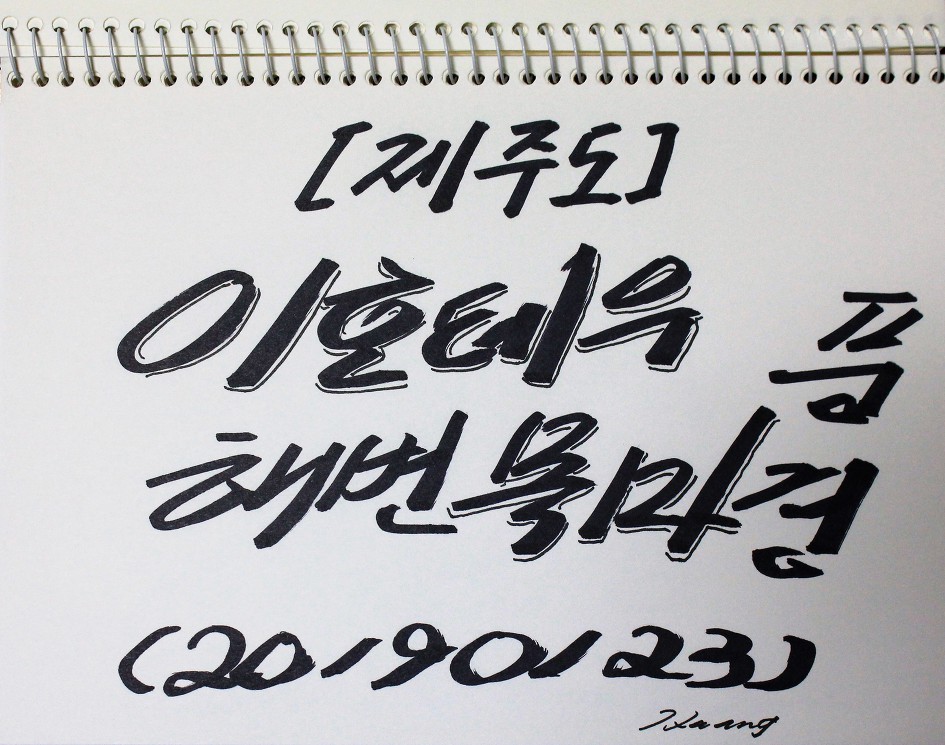 [제주도]
이호테우
해변 목마 풍경
(20190123)
Hwang